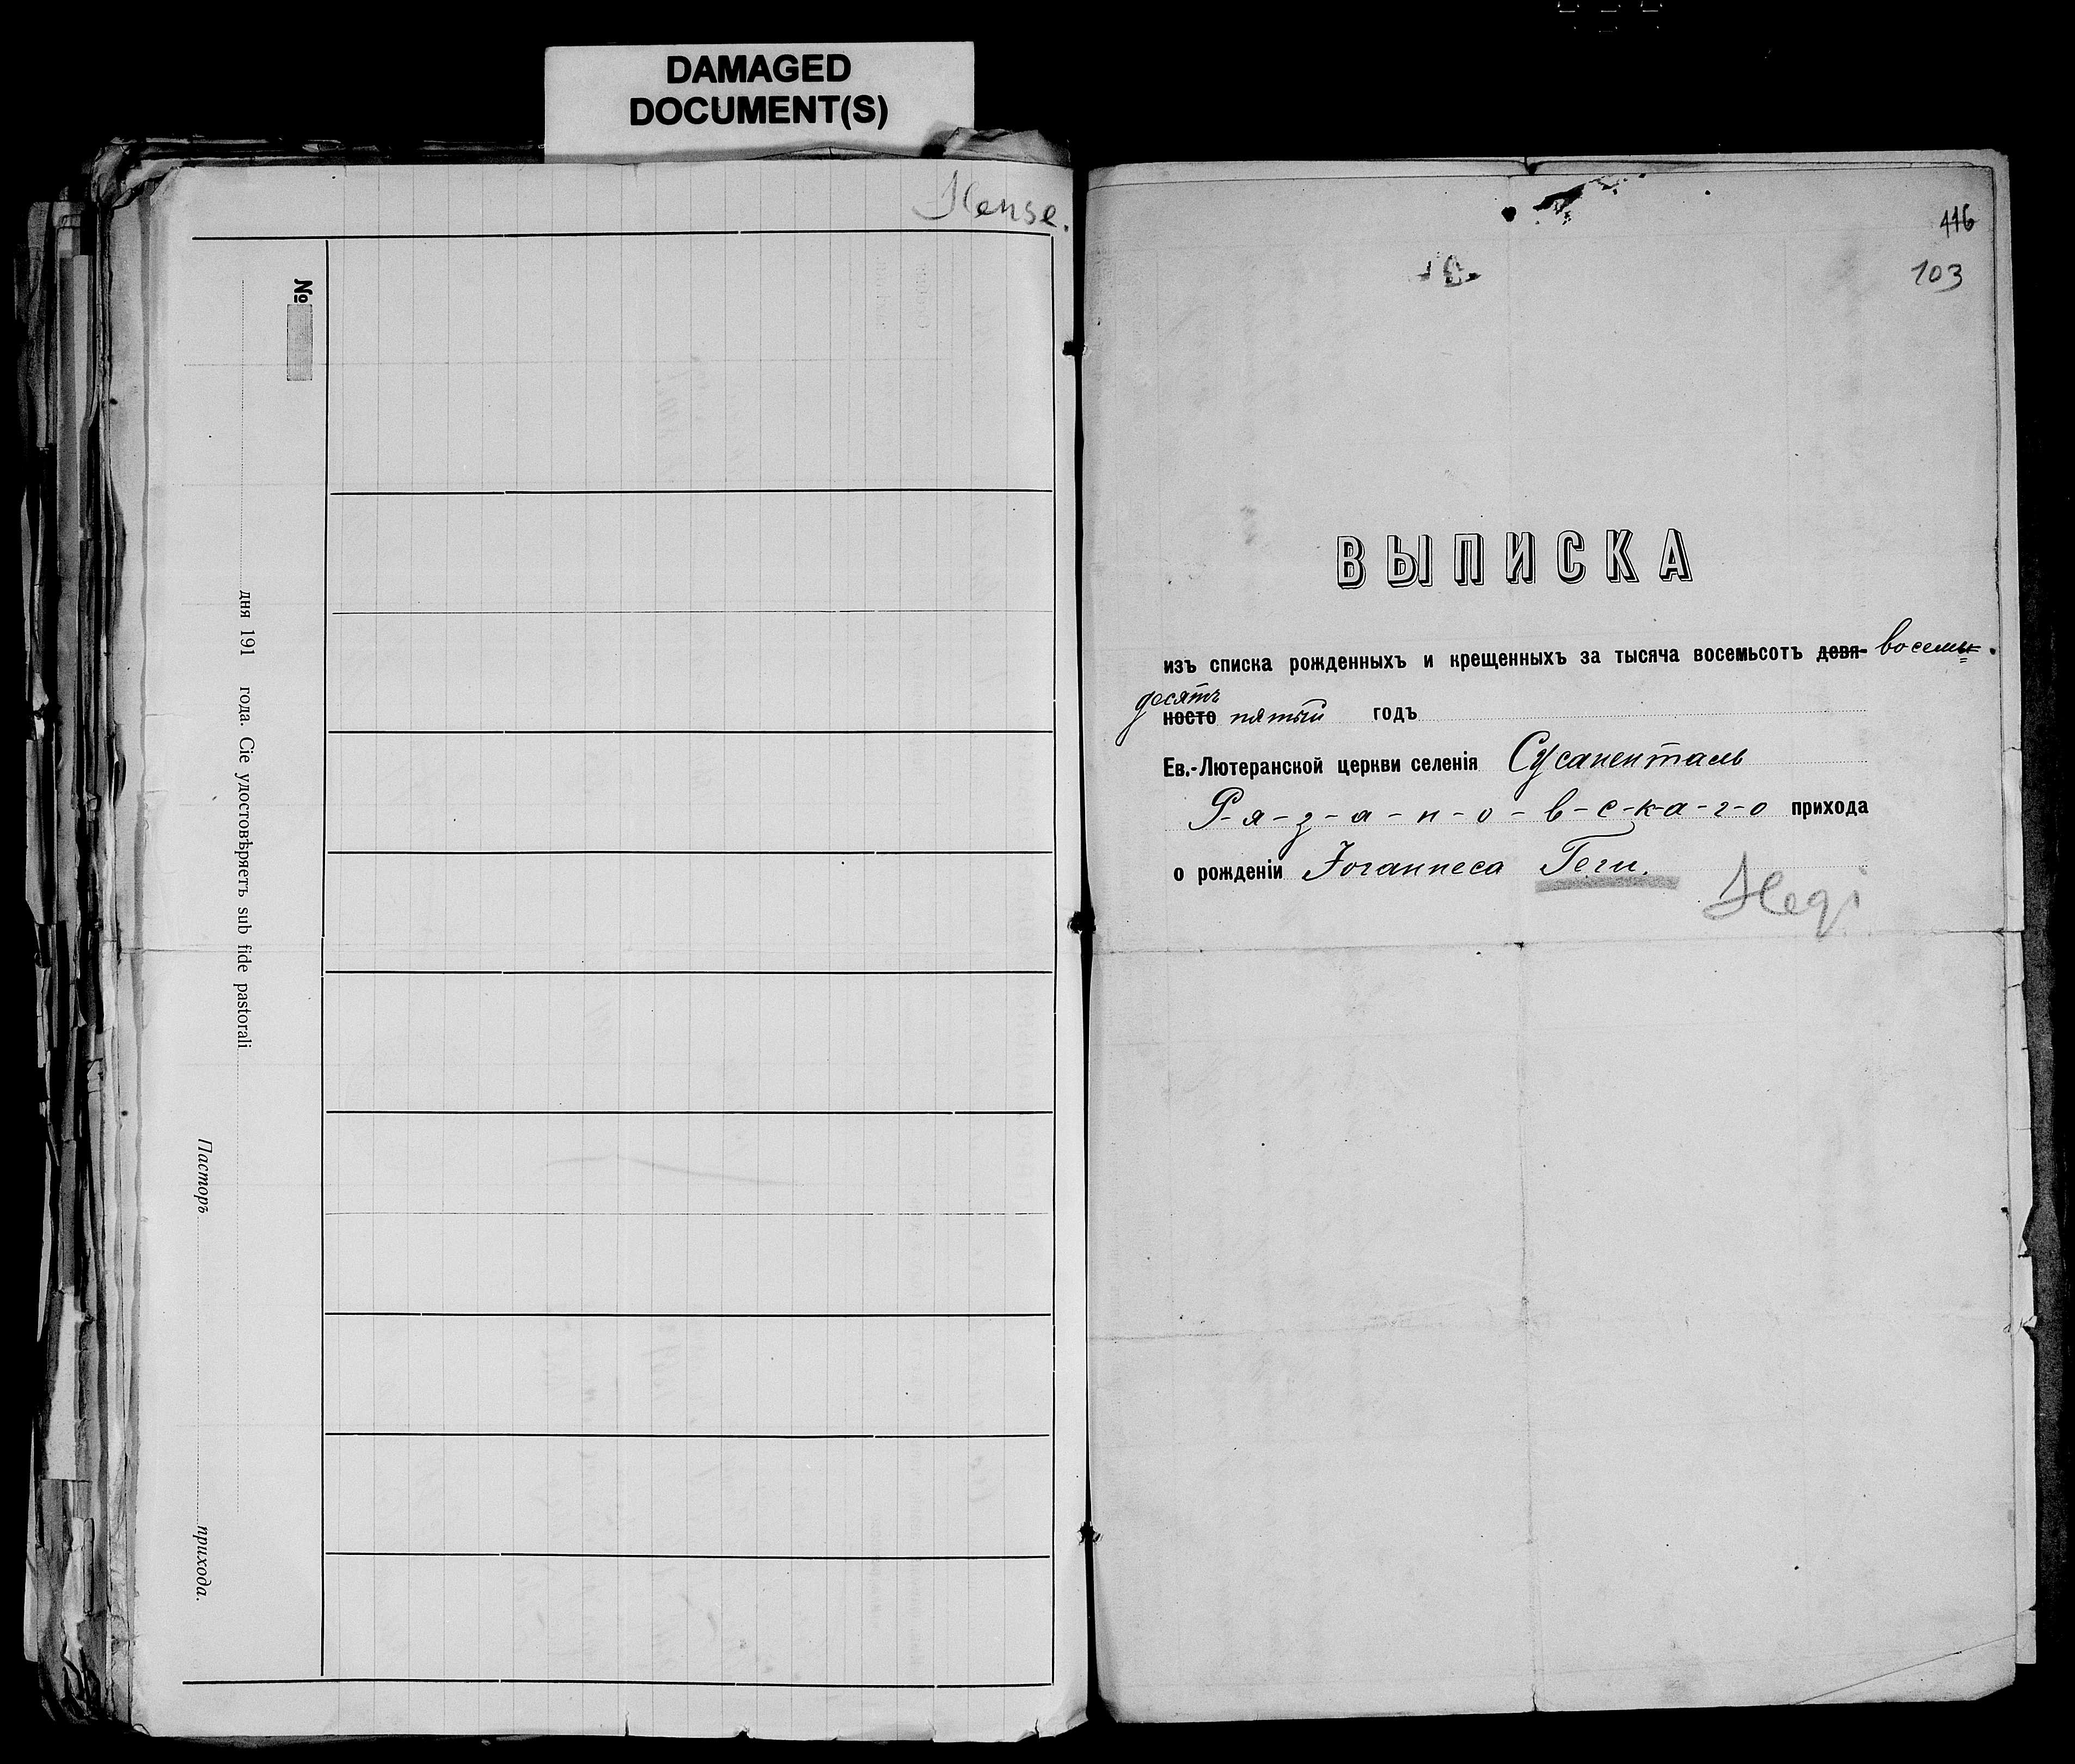 DAMAGED
DOCUMENT(S)
Hense.
№
дня 191 года. Сіе удостовѣряетъ sub fide pastorali
Пасторъ прихода.
116
103
ВЫПИСКА
изъ списка рожденныхъ и крещенныхъ за тысяча восемьсотъ девя- восемь-
десятъ
носто пятый годъ
Ев.-Лютеранской церкви селенія Сусаненталь
Р-я-з-а-н-о-в-с-к-а-г-о прихода
о рожденіи Іоганнеса Геги.
Hegi